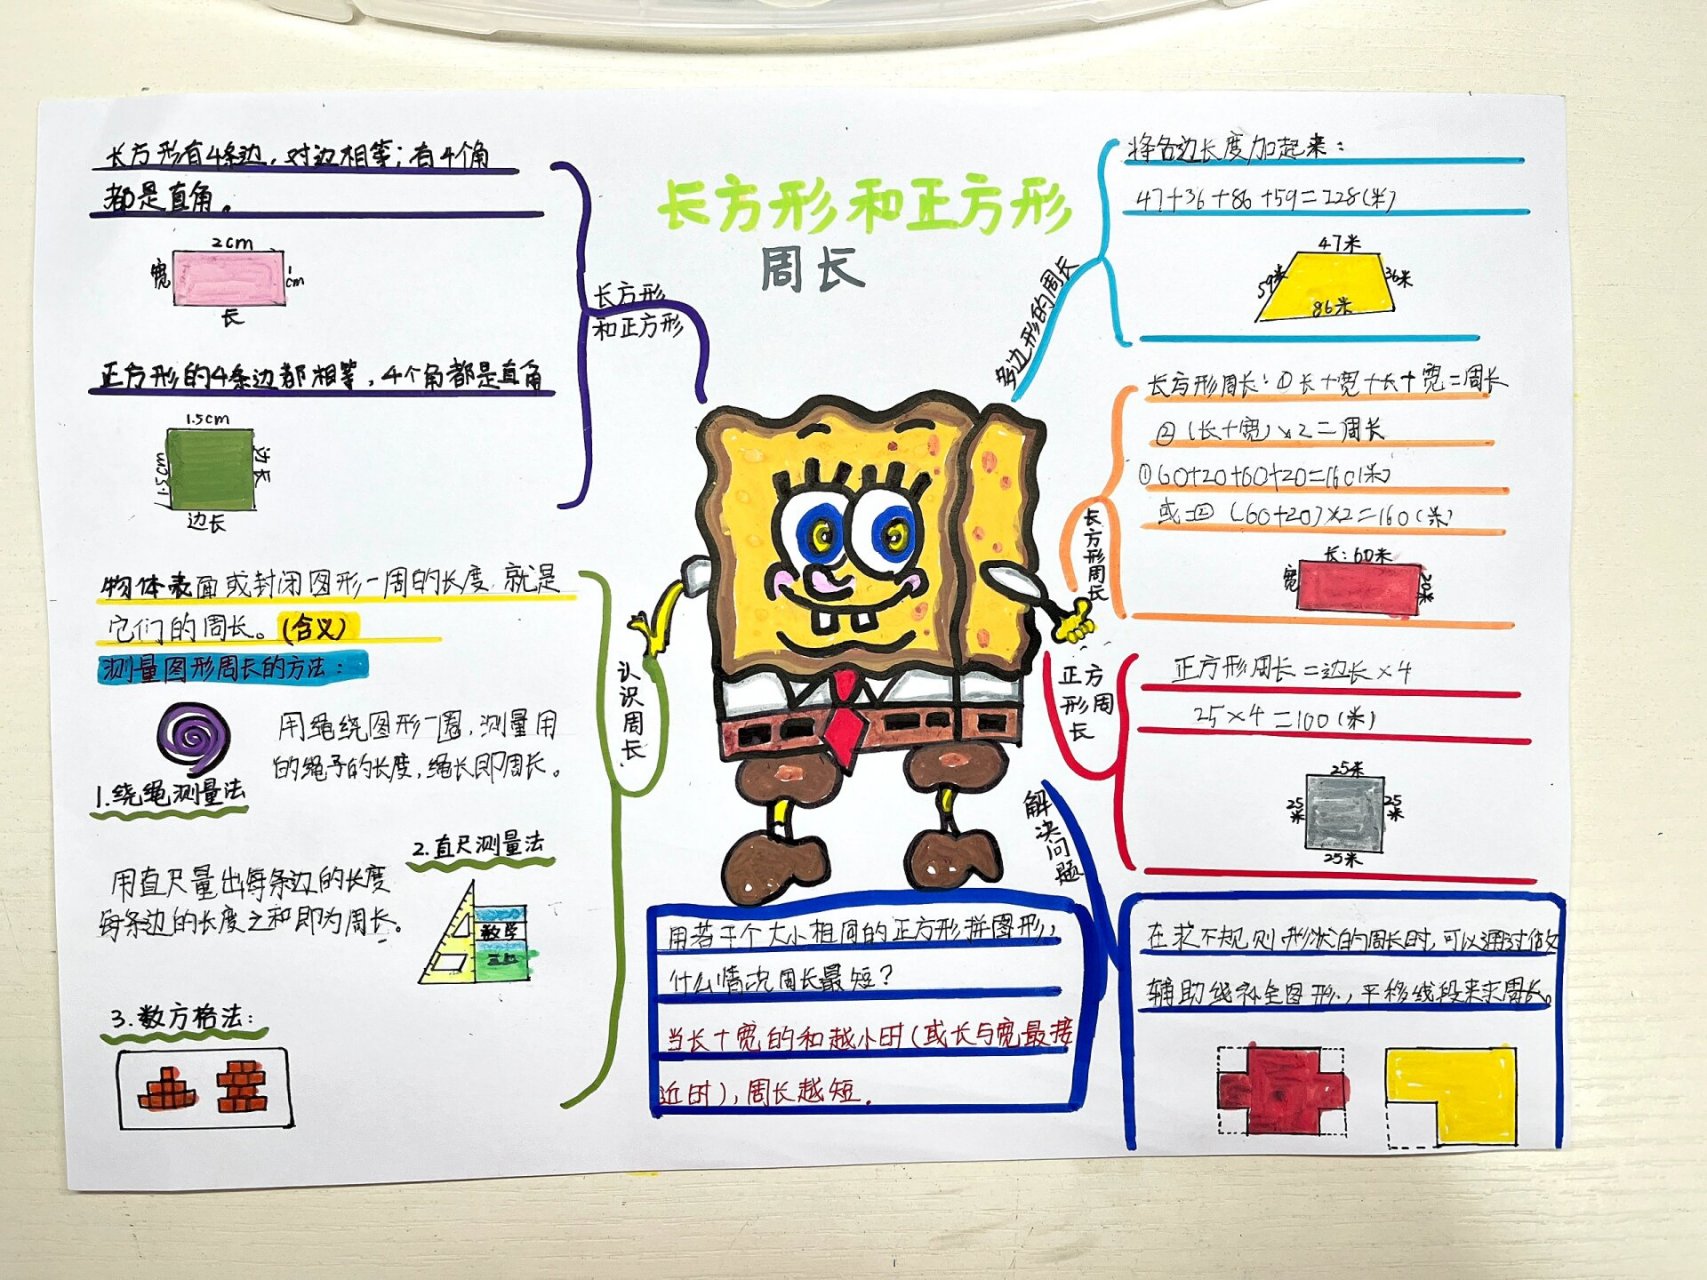 长方形和正方形
周长
长方形有4条边，对边相等；有4个角
都是直角。
2cm
宽
1cm
长
正方形的4条边都相等，4个角都是直角
1.5cm
1.5cm
边长
边长
长方形
和正方形
物体表面或封闭图形一周的长度，就是
它们的周长。(含义)
测量图形周长的方法：
用绳绕图形一圈，测量用
的绳子的长度，绳长即周长。
1.绕绳测量法
2.直尺测量法
用直尺量出每条边的长度
每条边的长度之和即为周长。
数学
三上
3.数方格法：
认识周长
多边形的周长
将各边长度加起来：
47+36+86+59=228(米)
47米
59米
36米
86米
长方形周长
长方形周长：①长+宽+长+宽=周长
②(长+宽)×2=周长
①60+20+60+20=160(米)
或：②(60+20)×2=160(米)
长：60米
宽
20米
正方形周长
正方形周长=边长×4
25×4=100(米)
25米
25米
25米
25米
解决问题
用若干个大小相同的正方形拼图形，
什么情况周长最短？
当长+宽的和越小时(或长与宽最接
近时)，周长越短．
在求不规则形状的周长时，可以通过做
辅助线补全图形，平移线段来求周长。